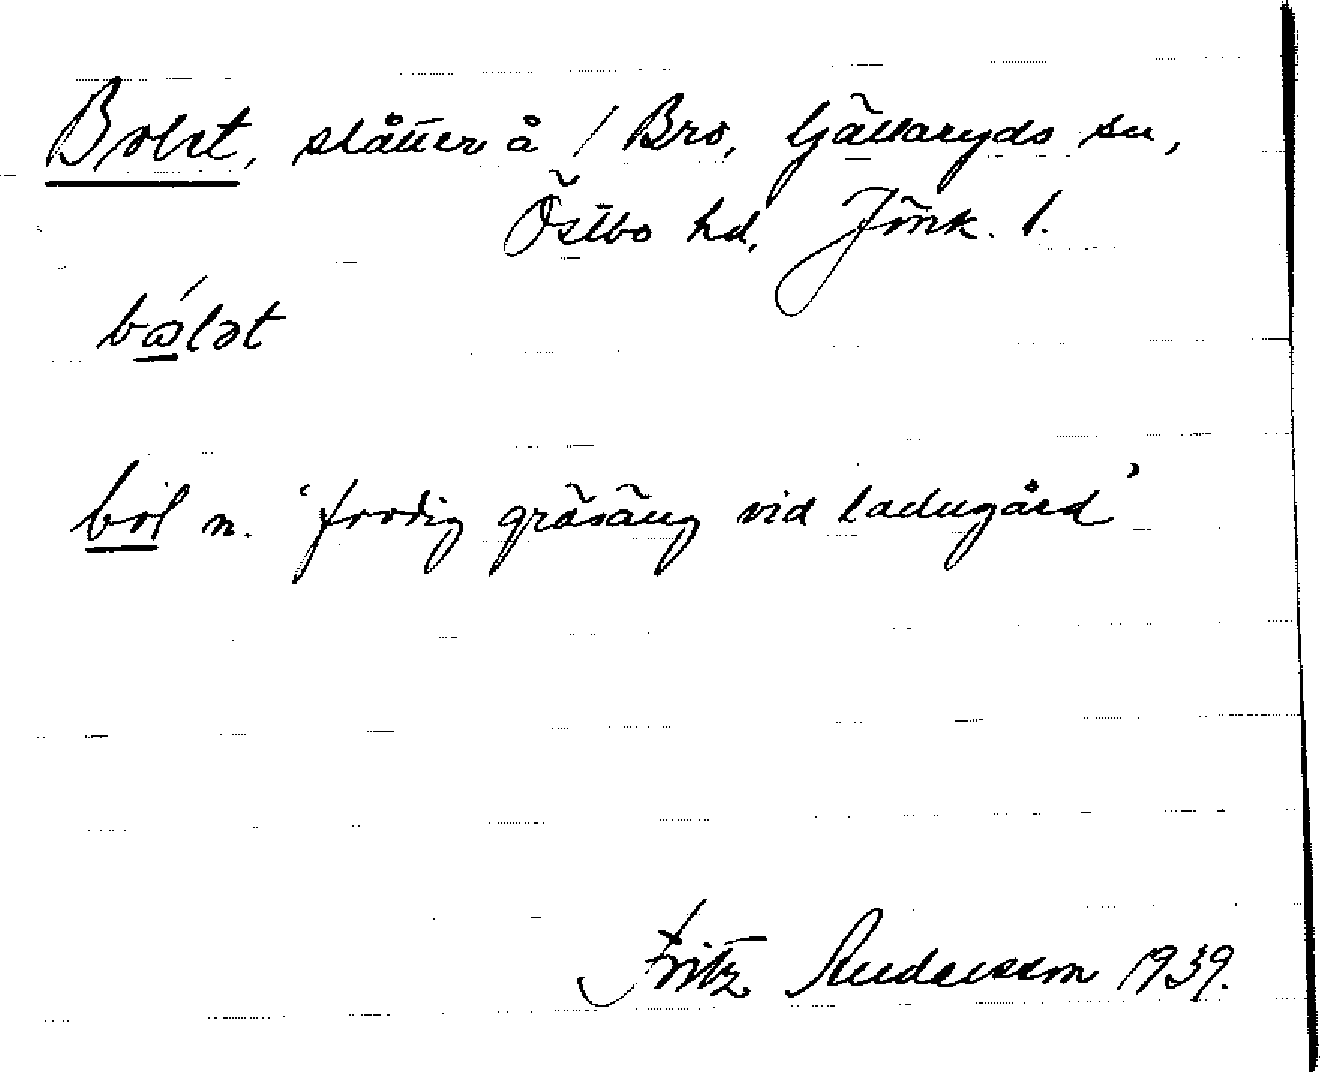 Bolet, slåtter å / Bro, Gällaryds sn,
Östbo hd, Jönk. l.
bólət
bol n. 'frodig gräsäng vid ladugård'
Fritz Andersson 1939.